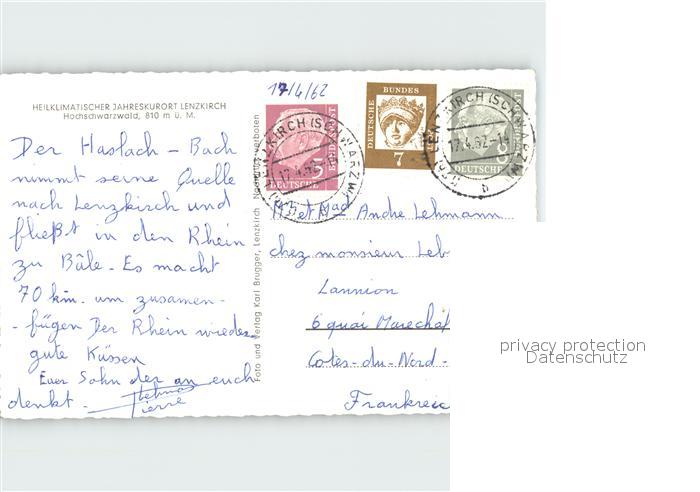 HEILKLIMATISCHER JAHRESKURORT LENZKIRCH
Hochschwarzwald, 810 m ü. M.
Der Haslach - Bach
nimmt seine Quelle
nach Lenzkirch und
fließt in den Rhein
zu Bâle. Es macht
70 km. um zusamen-
-fügen Der Rhein wieder
gute Küssen
Euer Sohn der an euch
denkt.
Pierre
Foto und Verlag Karl Brugger, Lenzkirch Nachdruck verboten
17/4/62
DEUTSCHE BUNDESPOST
DEUTSCHE BUNDES
7
LENZKIRCH (SCHWARZW)
17.4.62
b
Mr et Mad Andre Lehmann
chez monsieur Leb
Lannion
6 quai Marechal
Cotes-du-Nord-
Frankreic
privacy protection
Datenschutz